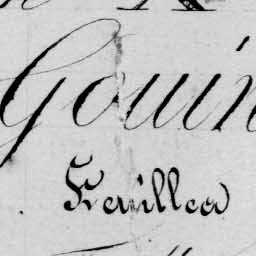 Gouin
Feuillea